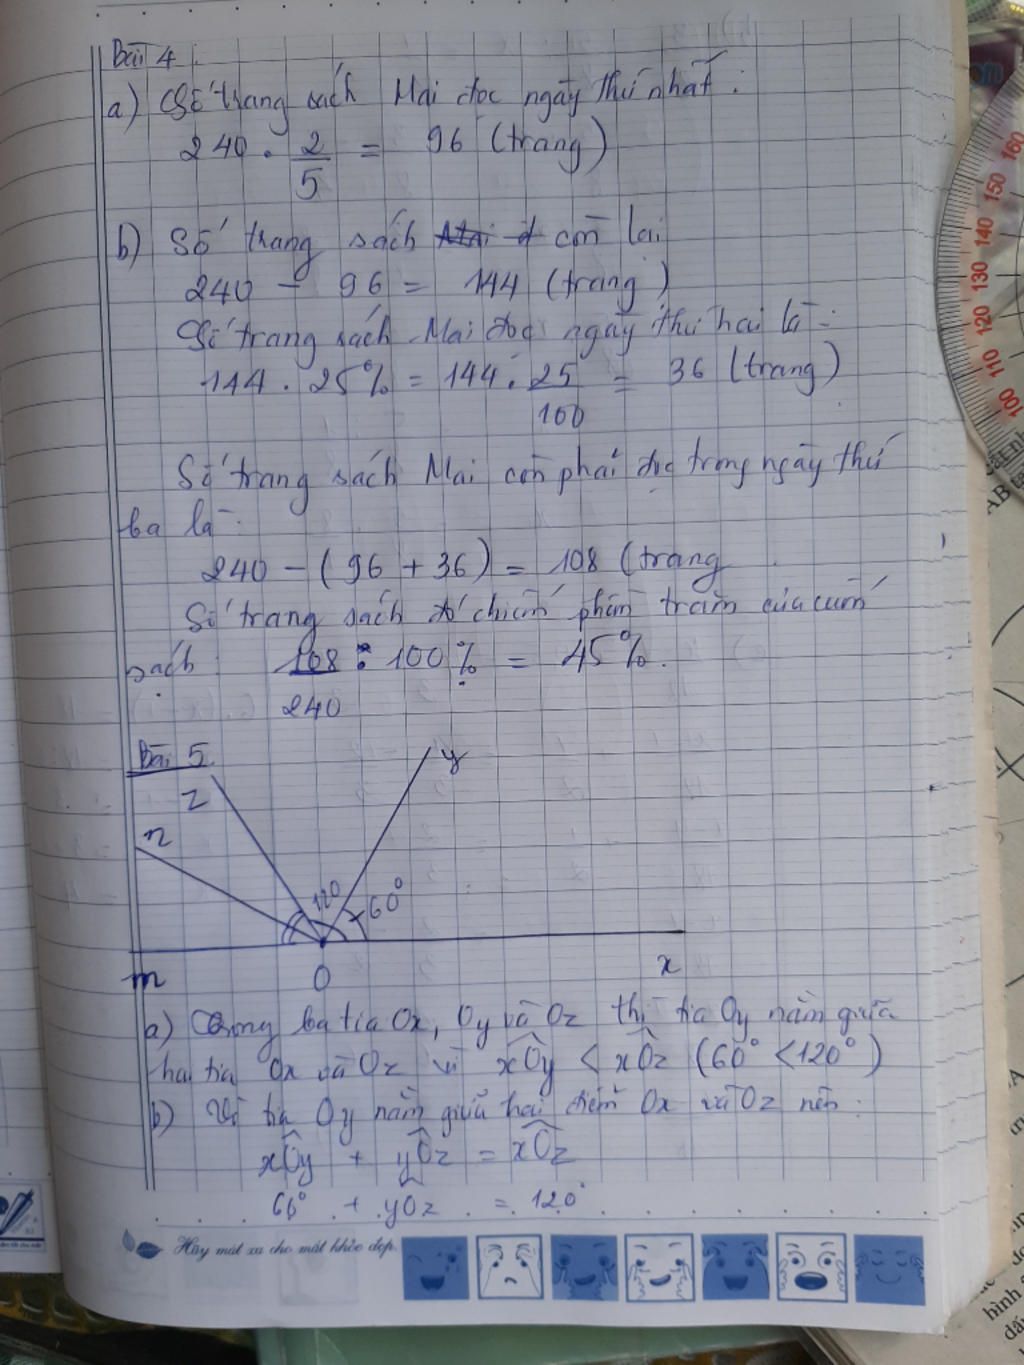 Bài 4.
a) Số trang sách Mai đọc ngày thứ nhất :
240 . 2/5 = 96 (trang)
b) Số trang sách còn lại
240 - 96 = 144 (trang)
Số trang sách Mai đọc ngày thứ hai là :
144 . 25% = 144 . 25/100 = 36 (trang)
Số trang sách Mai còn phải đọc trong ngày thứ
ba là :
240 - (96 + 36) = 108 (trang
Số trang sách đó chiếm phần trăm của cuốn
sách 108/240 : 100% = 45%.
Bài 5
y
z
n
120
60°
m
O
x
a) Trong ba tia Ox, Oy và Oz thì tia Oy nằm giữa
hai tia Ox và Oz vì xOy < xOz (60° < 120°)
b) Vì tia Oy nằm giữa hai điểm Ox và Oz nên :
xOy + yOz = xOz
60° + yOz = 120°
Hãy mát xa cho mắt khỏe đẹp.
160
150
140
130
120
110
100
AB
hình